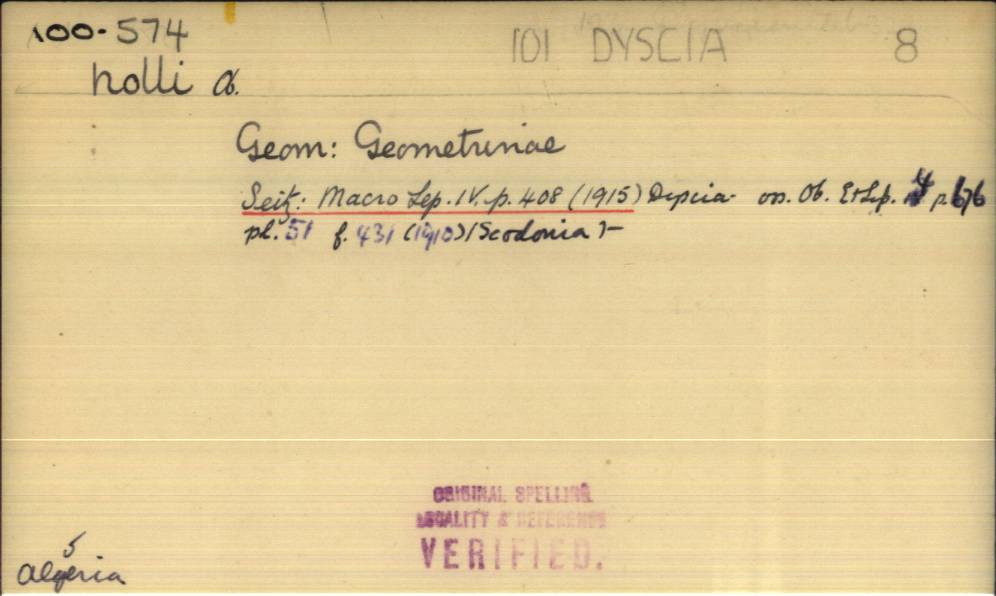 100-574
101 DYSCIA 8
holli Ob.
Geom: Geometrinae
Seitz: Macro Lep. IV. p. 408 (1915) Dyscia- on. Ob. Et. Lep. 4 p. 676
pl. 51 f. 431 (1910) (Scodonia)-
ORIGINAL SPELLING
LOCALITY & REFERENCE
VERIFIED.
5
Algeria